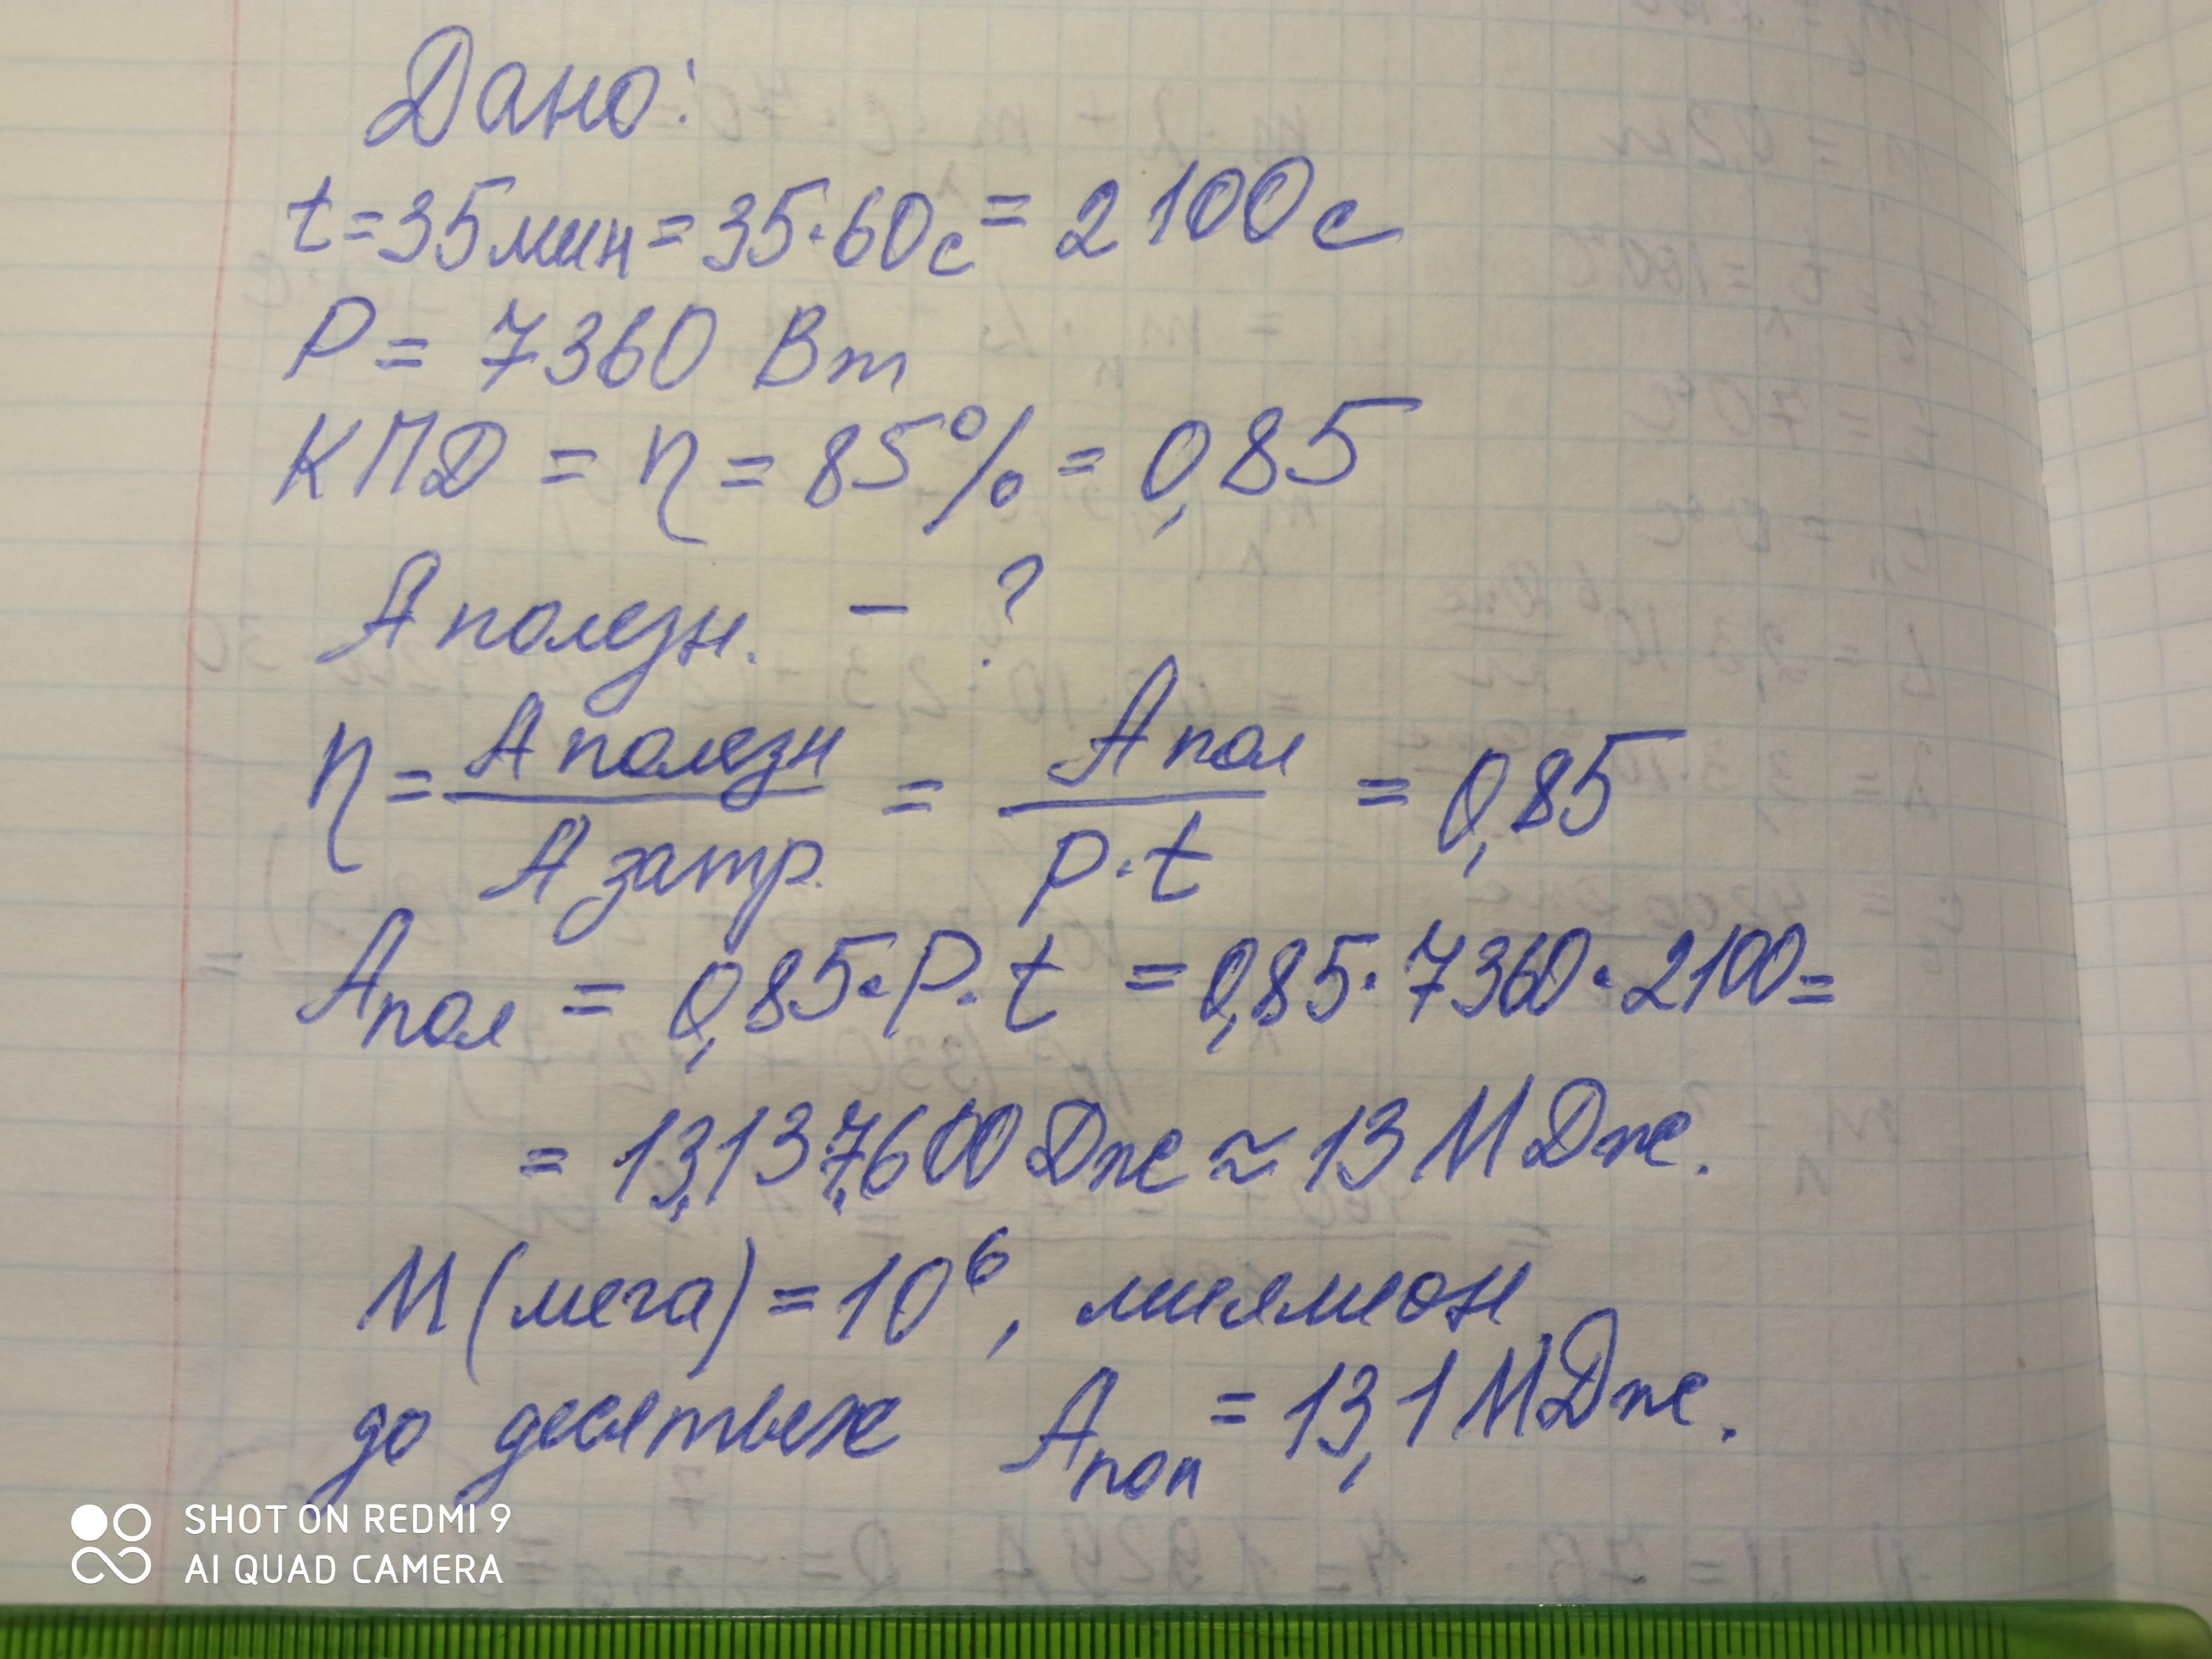 Дано:
t = 35 мин = 35·60 с = 2100 с
P = 7360 Вт
КПД = η = 85% = 0,85
A полезн. – ?
η = A полезн / A затр. = A пол / P·t = 0,85
A пол = 0,85·P·t = 0,85·7360·2100 =
= 13,137,600 Дж ≈ 13 МДж.
М (мега) = 10⁶, миллион
до десятых A пол = 13,1 МДж.
SHOT ON REDMI 9
AI QUAD CAMERA